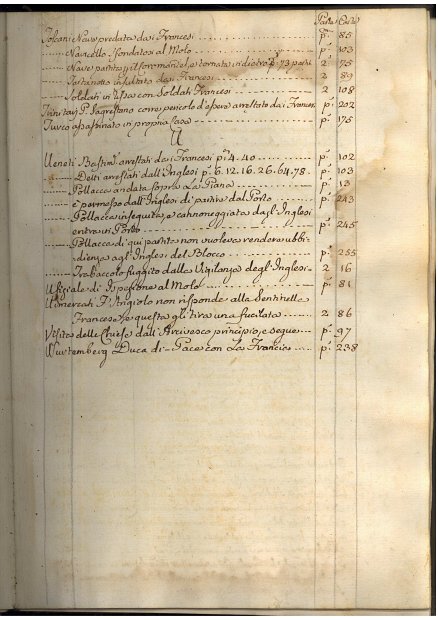 Parte Carte
Toscani Nave predata dai Francesi p.ª 85
Navicello sfondatosi al Molo p.ª 103
Nave partita p. il formond.º e tornata indietro p.ª 73 parte 2 175
insultato dai Francesi 2 89
Soldati in rissa con Soldati Francesi 2 108
Trinitarj P. Sagrestano corre pericolo d'essere arrestato dai Francesi p.ª 202
Turco assassinato in propria Casa p.ª 175
U
Veneti Bastim.ti arrestati dai Francesi p.ª 4. 40 p.ª 102
Detti arrestati dall'Inglesi p. 6. 12. 16. 26. 64. 78. p.ª 103
Pollacca andata sopra La Piana p.ª 13
è permesso dall'Inglesi di partire dal Porto p.ª 243
Pollacca inseguita, e cannoneggiata dagl'Inglesi
entra in Porto p.ª 245
Pollacca di qui partita non voleva rendere ubbi-
dienza agl'Inglesi del Blocco p.ª 255
Trabaccolo fuggito dalla Vigilanza degl'Inglesi 2 16
Uffiziale di Ispezione al Molo p.ª 81
F. Angiolo non risponde alla Sentinella
Francese, e questa gli tira una fucilata 2 86
Visita delle Chiese dall'Arcivesco principio, e segue p.ª 97
Wurtemberg Duca di Pace con La Francia p.ª 238